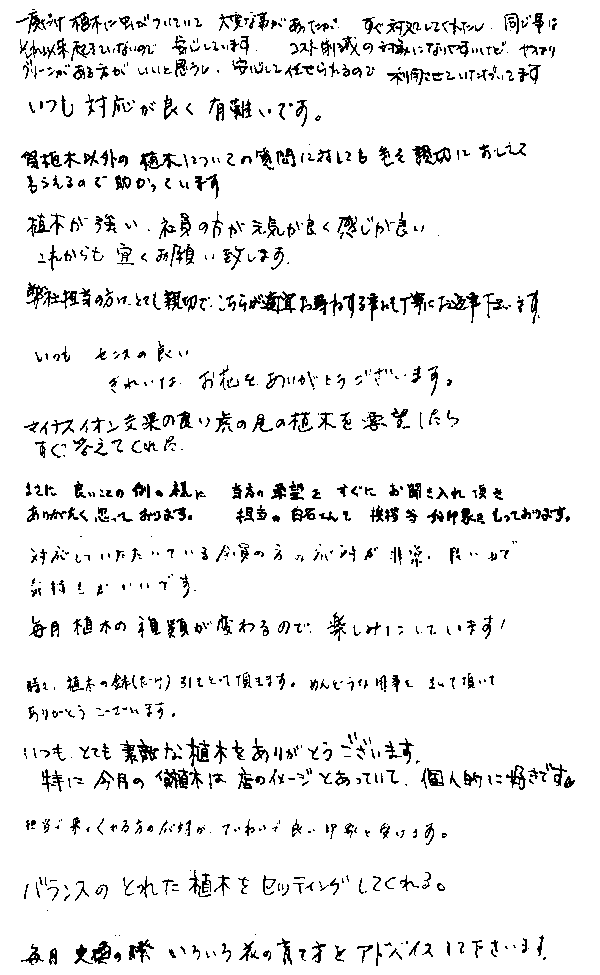 一度だけ植木に虫がついていて 大変な事があったが、すぐ対処してくれたし、同じ事は
それ以来起きていないので 安心しています。 コスト削減の対象になりやすいけど、やっぱり
グリーンがある方が いいと思うし、安心して任せられるので 利用させていただいてます
いつも 対応が良く 有難いです。
貸植木以外の 植木についての質問に対しても 色々親切におしえて
もらえるので助かっています
植木が強い、社員の方が元気が良く感じが良い
これからも宜くお願い致します。
弊社担当の方は、とても親切で、こちらが適宜お尋ねする事にも丁寧にお返事下さいます。
いつも センスの良い
きれいな お花を ありがとうございます。
マイナスイオン効果の良い虎の尾の植木を要望したら
すぐ答えてくれた
まさに 良いことの例の様に 当方の希望を すぐに お聞き入れ頂き
ありがたく思っております。 担当の白石さんも 挨拶等 好印象をもっております。
対応していただいている会員の方の応対が非常に良いので
気持ちがいいです。
毎月植木の種類が変わるので、楽しみにしています!
時々、植木の鉢(だけ)引きとって頂きます。めんどうな用事を して頂いて
ありがとうございます。
いつも、とても素敵な植木をありがとうございます。
特に今月の貸植木は店のイメージとあっていて、個人的に好きです。
担当で来てくれる方の応対が、ていねいで良い印象を受けます。
バランスのとれた植木をセッティングしてくれる。
毎月 交換の際 いろいろ花の育て方を アドバイスして下さいます。